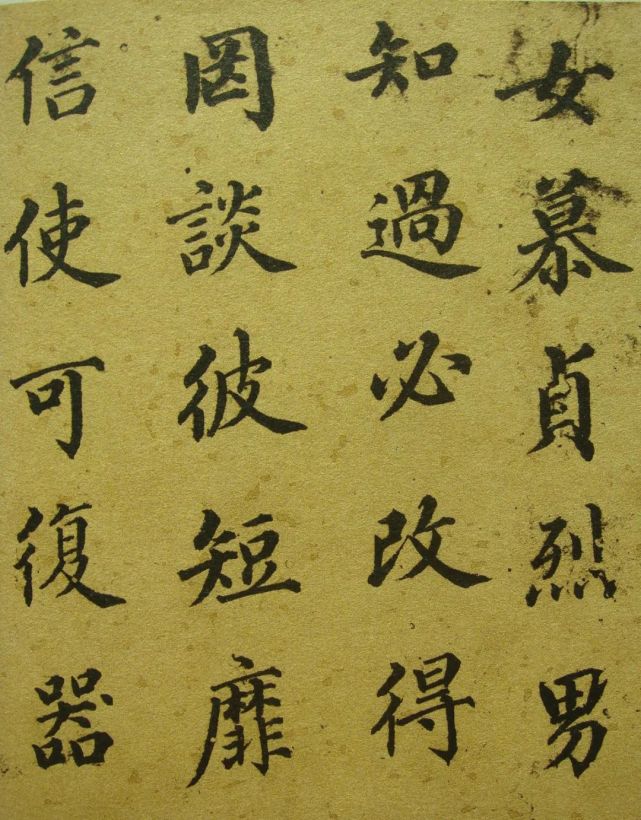 女慕貞烈男
知過必改得
罔談彼短靡
信使可復器